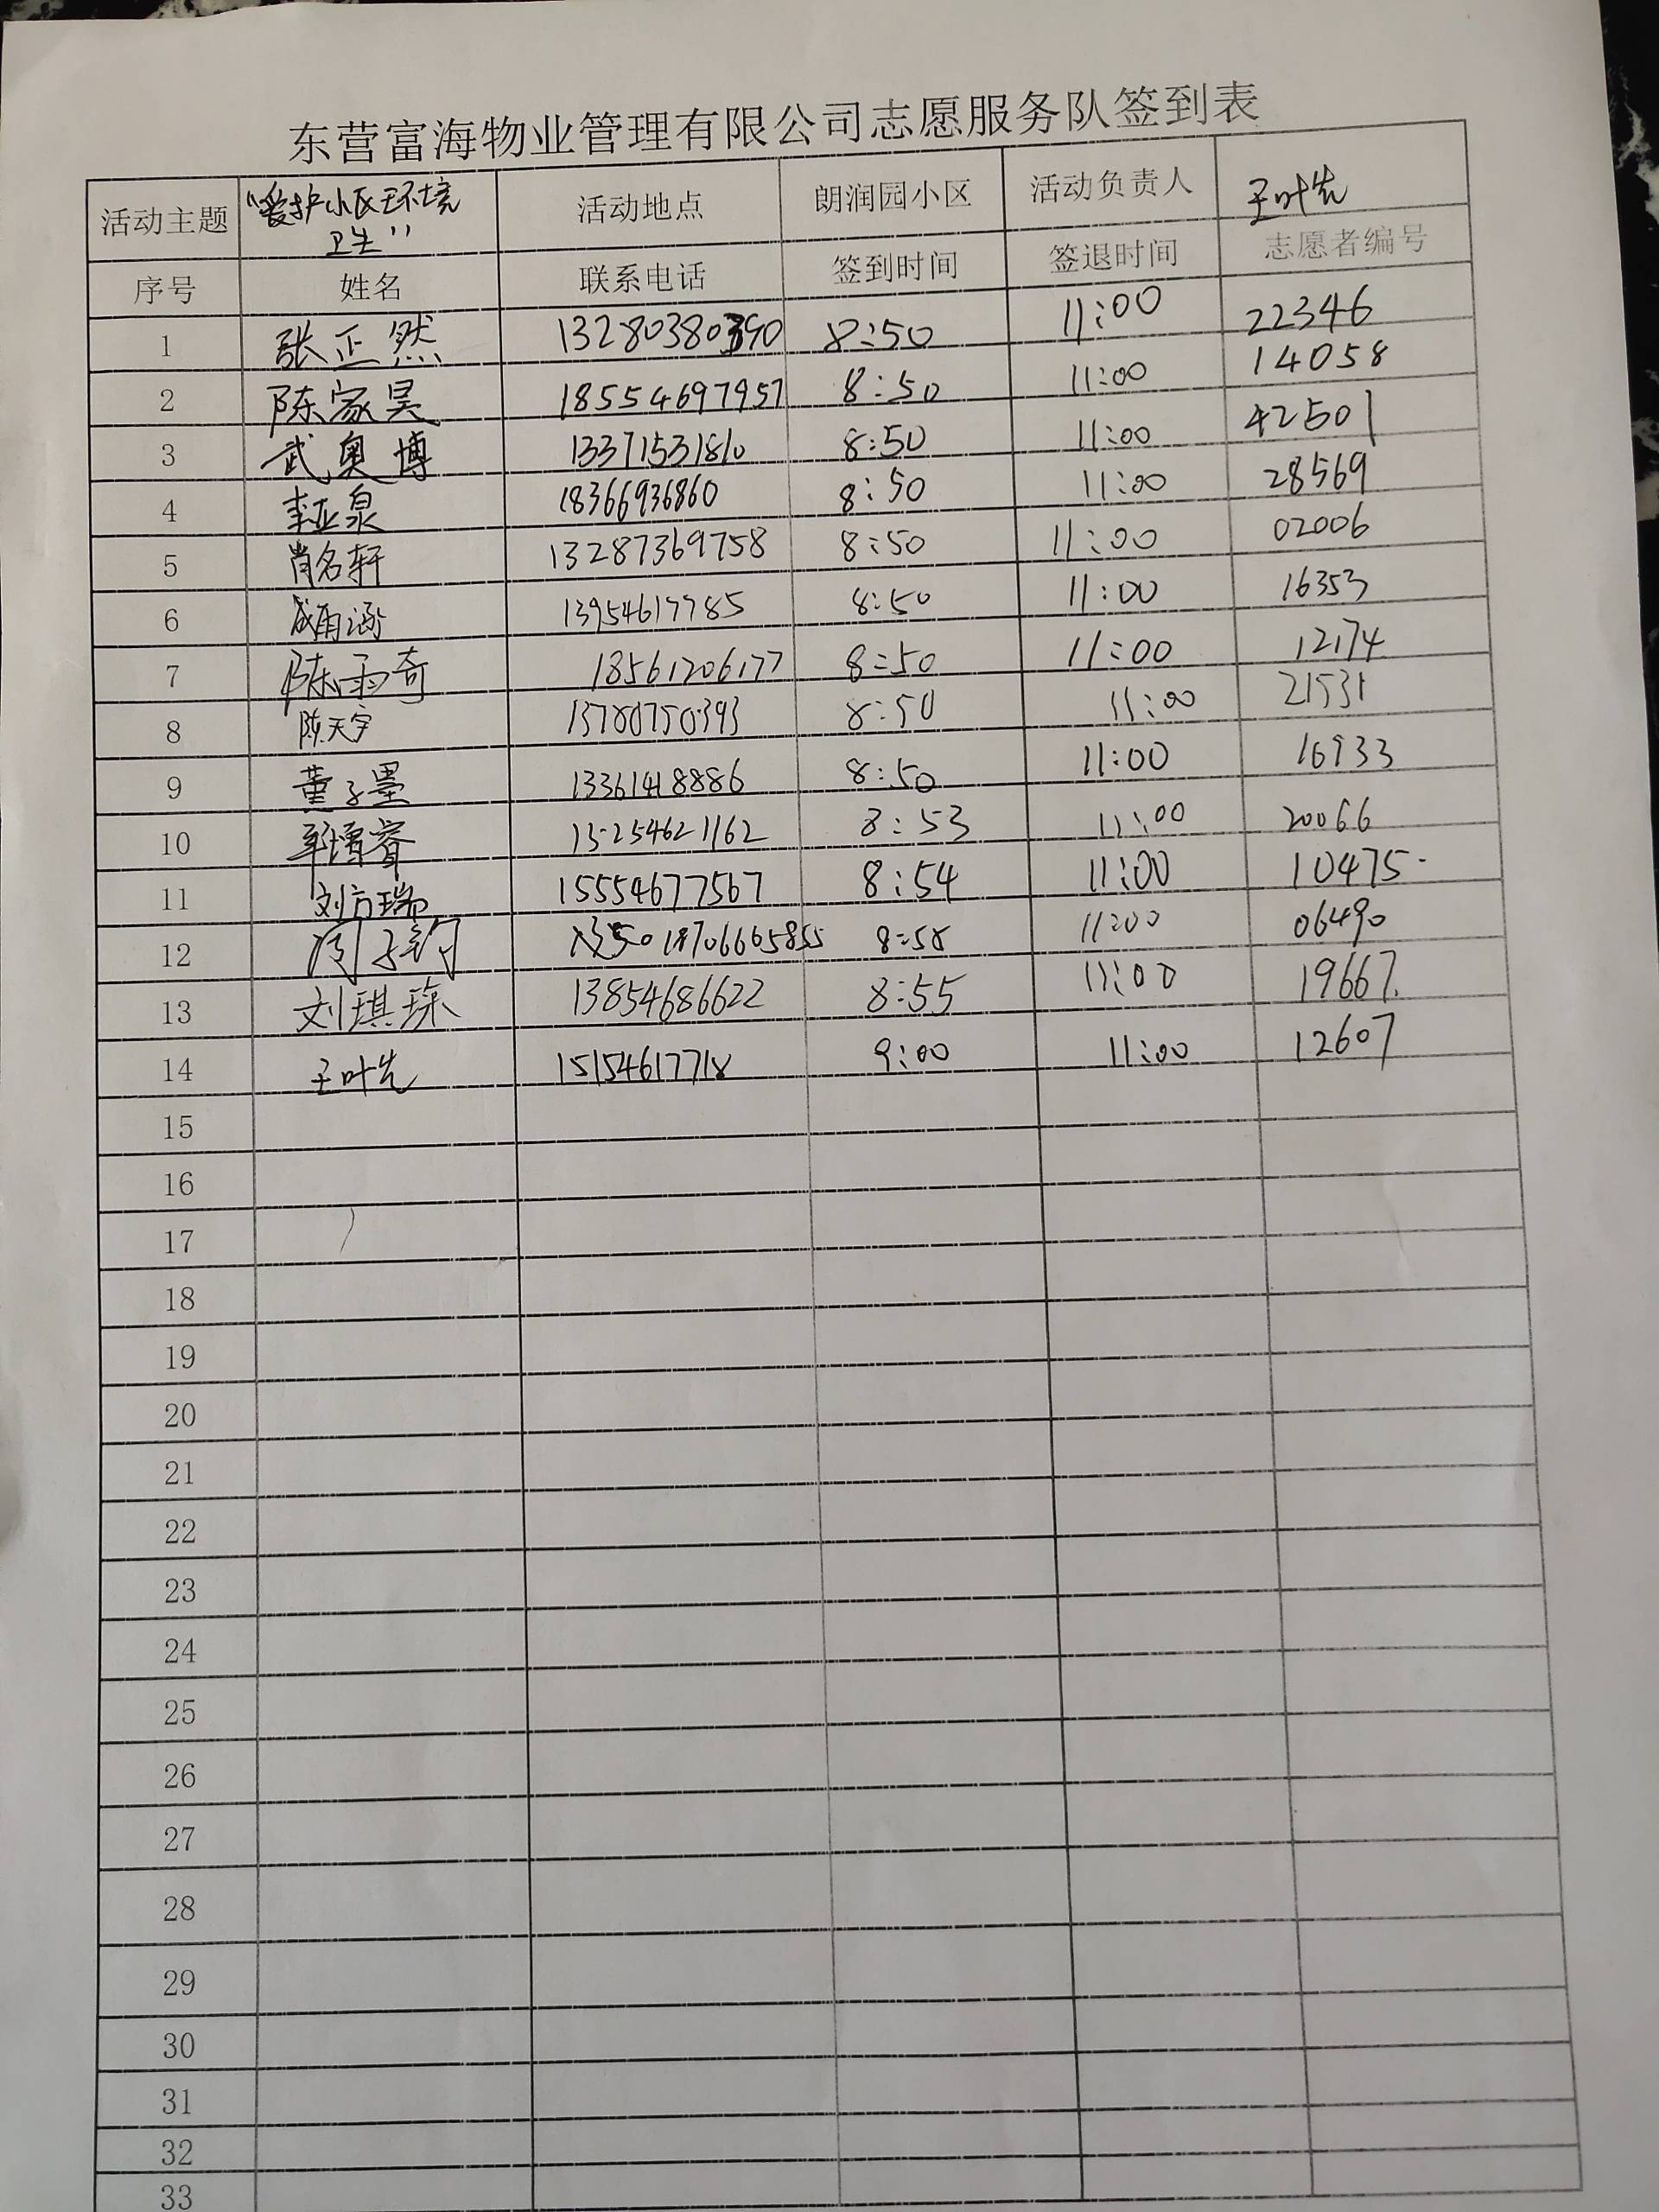 东营富海物业管理有限公司志愿服务队签到表
活动主题 "爱护小区环境卫生" 活动地点 朗润园小区 活动负责人 王叶先
序号 姓名 联系电话 签到时间 签退时间 志愿者编号
1 张正然 13280380390 8:50 11:00 22346
2 陈家昊 18554697957 8:50 11:00 14058
3 武奥博 13371531810 8:50 11:00 42501
4 李亚泉 18366936860 8:50 11:00 28569
5 肖名轩 13287369758 8:50 11:00 02006
6 13954617785 8:50 11:00 16353
7 陈雨奇 18561206177 8:50 11:00 12174
8 陈天宇 13780750393 8:50 11:00 21531
9 董子墨 13361418886 8:50 11:00 16933
10 15254621162 8:53 11:00 20066
11 刘方瑞 15554677567 8:54 11:00 10475
12 18706665855 8:58 11:00 06490
13 刘琪琛 13854686622 8:55 11:00 19667
14 王叶先 15154617718 9:00 11:00 12607
15
16
17
18
19
20
21
22
23
24
25
26
27
28
29
30
31
32
33